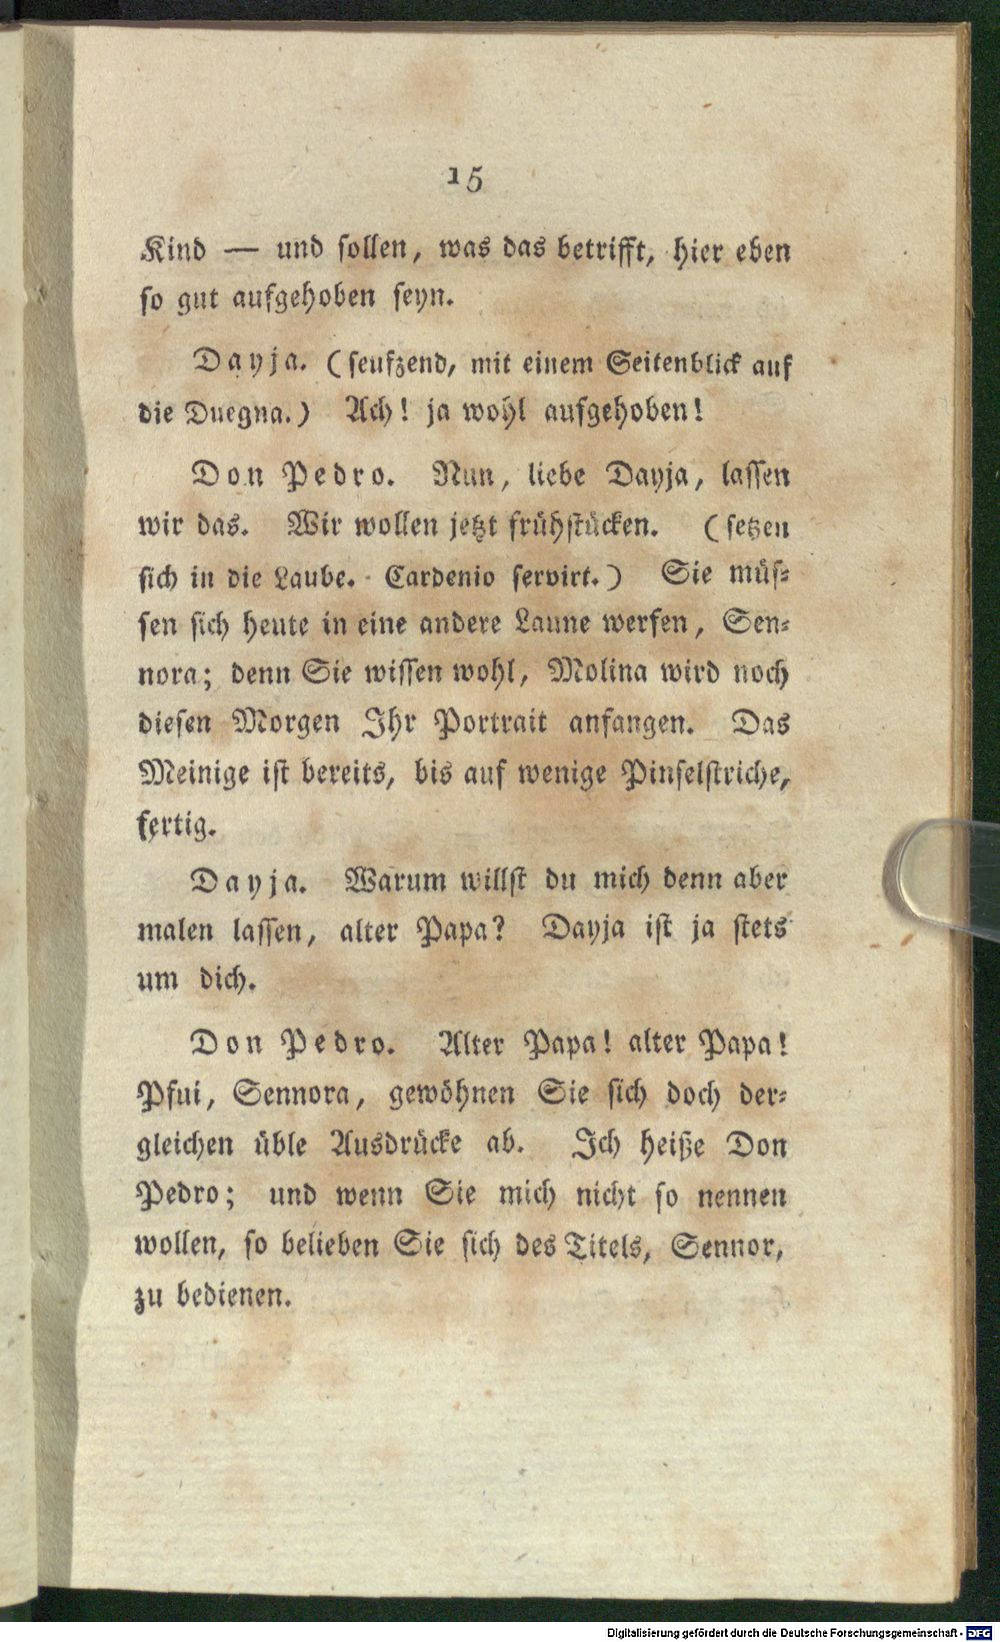 15
Kind — und sollen, was das betrifft, hier eben
so gut aufgehoben seyn.
Dayja. (seufzend, mit einem Seitenblick auf
die Duegna.) Ach! ja wohl aufgehoben!
Don Pedro. Nun, liebe Dayja, lassen
wir das. Wir wollen jetzt frühstücken. (setzen
sich in die Laube. Cardenio servirt.) Sie müs-
sen sich heute in eine andere Laune werfen, Sen-
nora; denn Sie wissen wohl, Molina wird noch
diesen Morgen Ihr Portrait anfangen. Das
Meinige ist bereits, bis auf wenige Pinselstriche,
fertig.
Dayja. Warum willst du mich denn aber
malen lassen, alter Papa? Dayja ist ja stets
um dich.
Don Pedro. Alter Papa! alter Papa!
Pfui, Sennora, gewöhnen Sie sich doch der-
gleichen üble Ausdrücke ab. Ich heiße Don
Pedro; und wenn Sie mich nicht so nennen
wollen, so belieben Sie sich des Titels, Sennor,
zu bedienen.
Digitalisierung gefördert durch die Deutsche Forschungsgemeinschaft - DFG